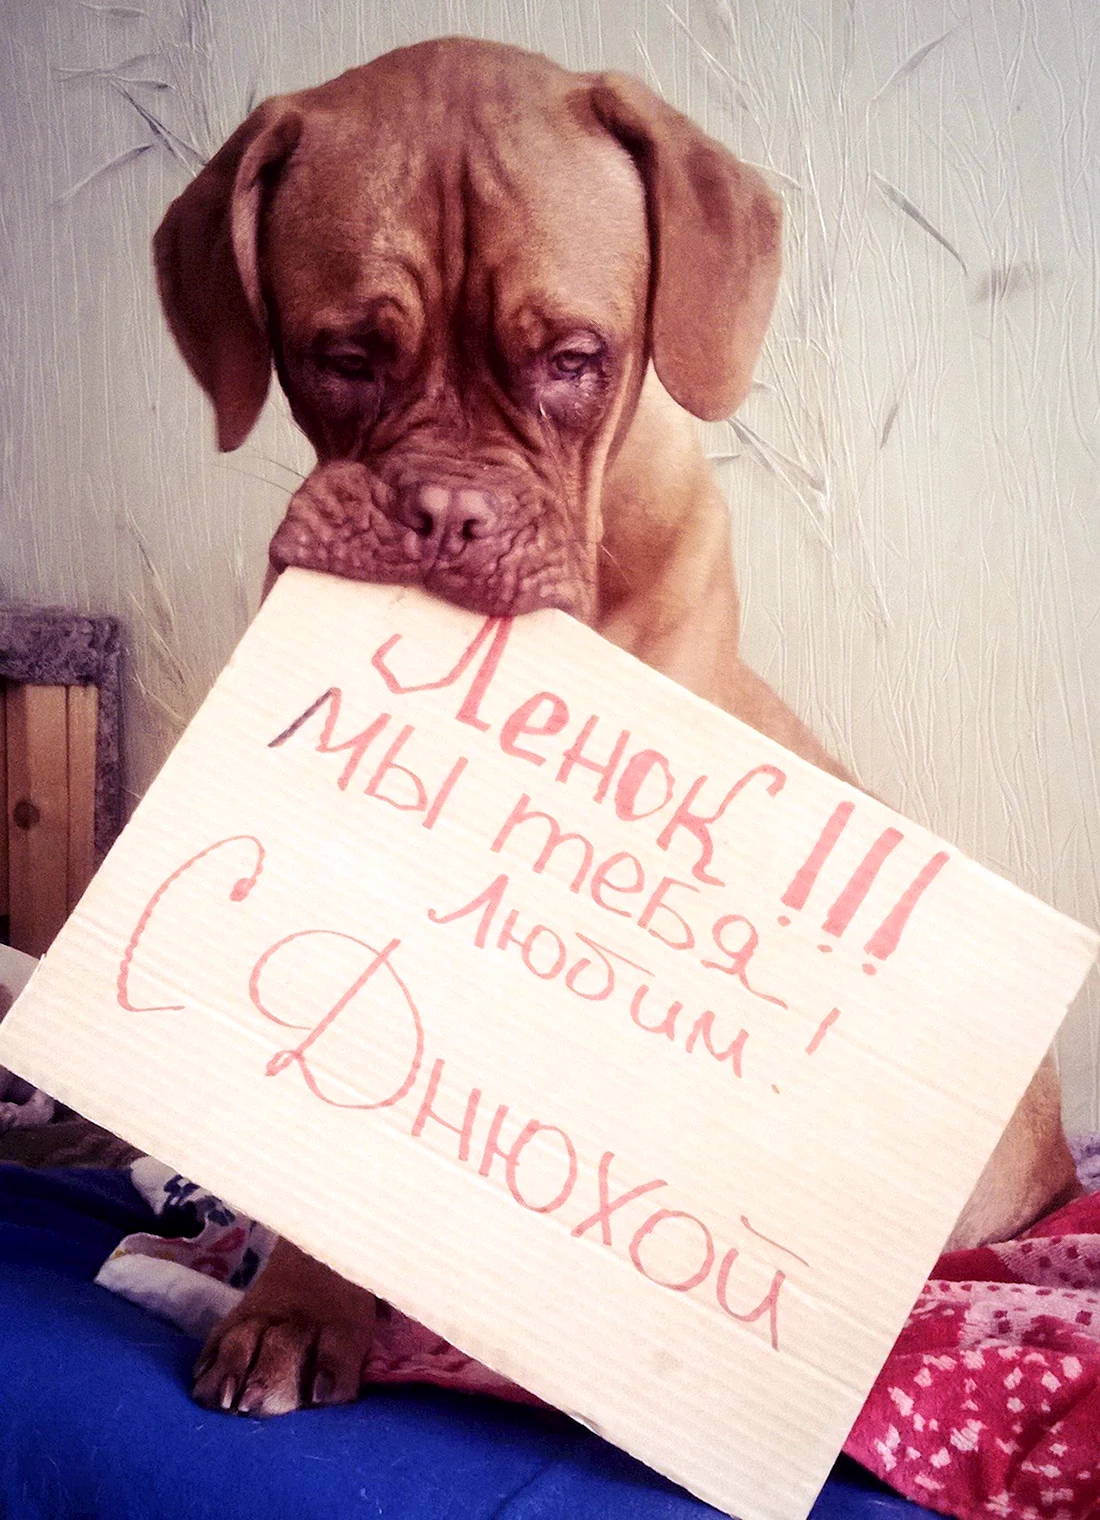 Ленок!!!
мы тебя!
любим.
С Днюхой